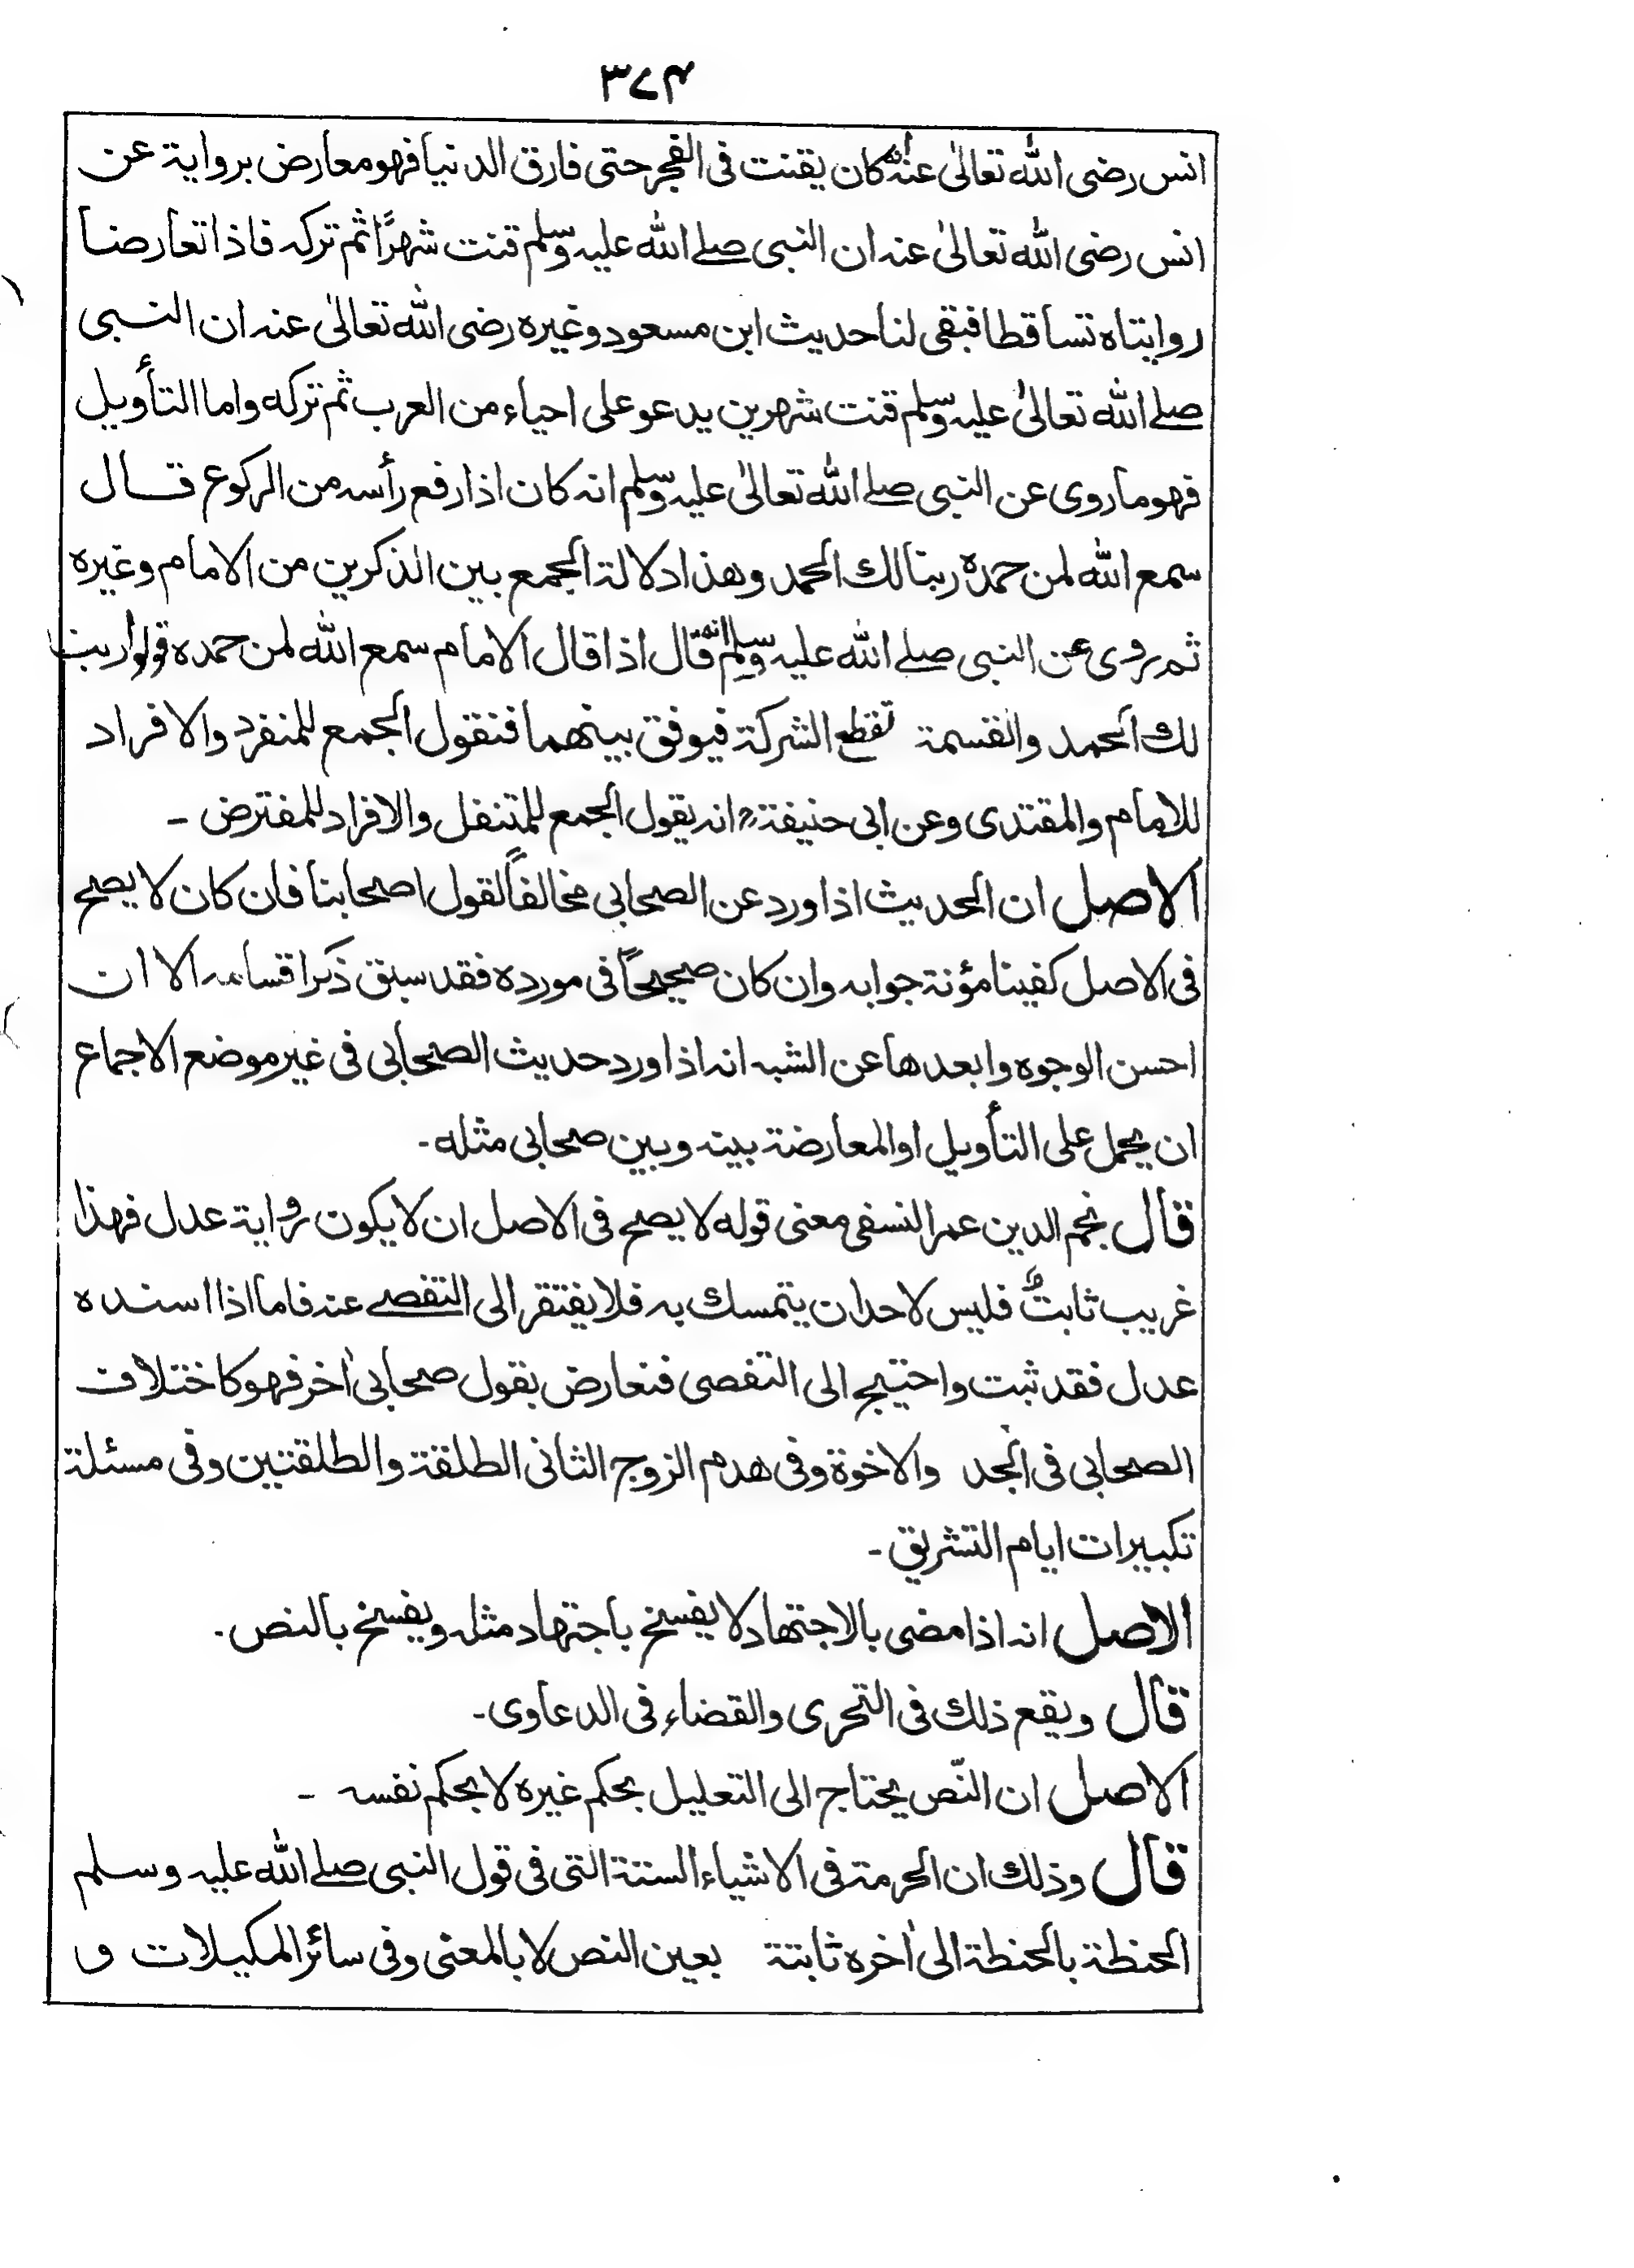 ٣٧٤
انس رضی الله تعالیٰ عنه انه كان يقنت فى الفجر حتى فارق الدنيا فهو معارض برواية عن
انس رضى الله تعالىٰ عنه ان النبى صلے الله عليه وسلم قنت شهرًا ثم تركه فاذا تعارضا
روايتاه تساقطا فبقى لنا حديث ابن مسعود وغيره رضى الله تعالىٰ عنه ان النبى
صلے الله تعالىٰ عليه وسلم قنت شهرين يدعو على احياء من العرب ثم تركه واما التأويل
فهو ماروى عن النبى صلے الله تعالىٰ عليه وسلم انه كان اذا رفع رأسه من الركوع قال
سمع الله لمن حمده ربنا لك الحمد وهذا دلالة الجمع بين الذكرين من الامام وغيره
ثم روى عن النبى صلے الله عليه وسلم انه قال اذا قال الامام سمع الله لمن حمده قولوا ربنا
لك الحمد والقسمة تقطع الشركة فيوفق بينهما فنقول الجمع للمنفرد والافراد
للامام والمقتدى وعن ابى حنيفةؒ انه يقول الجمع للمتنفل والافراد للمفترض ۔
الاصل ان الحديث اذا ورد عن الصحابى مخالفاً لقول اصحابنا فان كان لا يصح
فى الاصل كفينا مؤنة جوابه وان كان صحيحاً فى مورده فقد سبق ذكر اقسامه الا ان
احسن الوجوه وابعدها عن الشبه انه اذا ورد حديث الصحابى فى غير موضع الاجماع
ان يحمل على التأويل او المعارضة بينه وبين صحابى مثله ۔
قال نجم الدين عمر النسفى معنى قوله لا يصح فى الاصل ان لا يكون رواية عدل فهذا
غريب ثابت فليس لاحد ان يتمسك به فلا يفتقر الى التفصے عنه فاما اذا اسنده
عدل فقد ثبت واحتيج الى التفصى فنعارض بقول صحابى اٰخر فهو كاختلاف
الصحابى فى الجد والاخوة وفى هدم الزوج الثانى الطلقة والطلقتين وفى مسئلة
تكبيرات ايام التشريق ۔
الاصل انه اذا مضى بالاجتهاد لا يفسخ باجتهاد مثله ويفسخ بالنص ۔
قال ويقع ذلك فى التحرى والقضاء فى الدعاوى ۔
الاصل ان النّص يحتاج الى التعليل بحكم غيره لا بحكم نفسه ۔
قال وذلك ان الحرمة فى الاشياء الستة التى فى قول النبى صلے الله عليه وسلم
الحنطة بالحنطة الى اٰخره ثابتة بعين النص لا بالمعنى وفى سائر المكيلات و